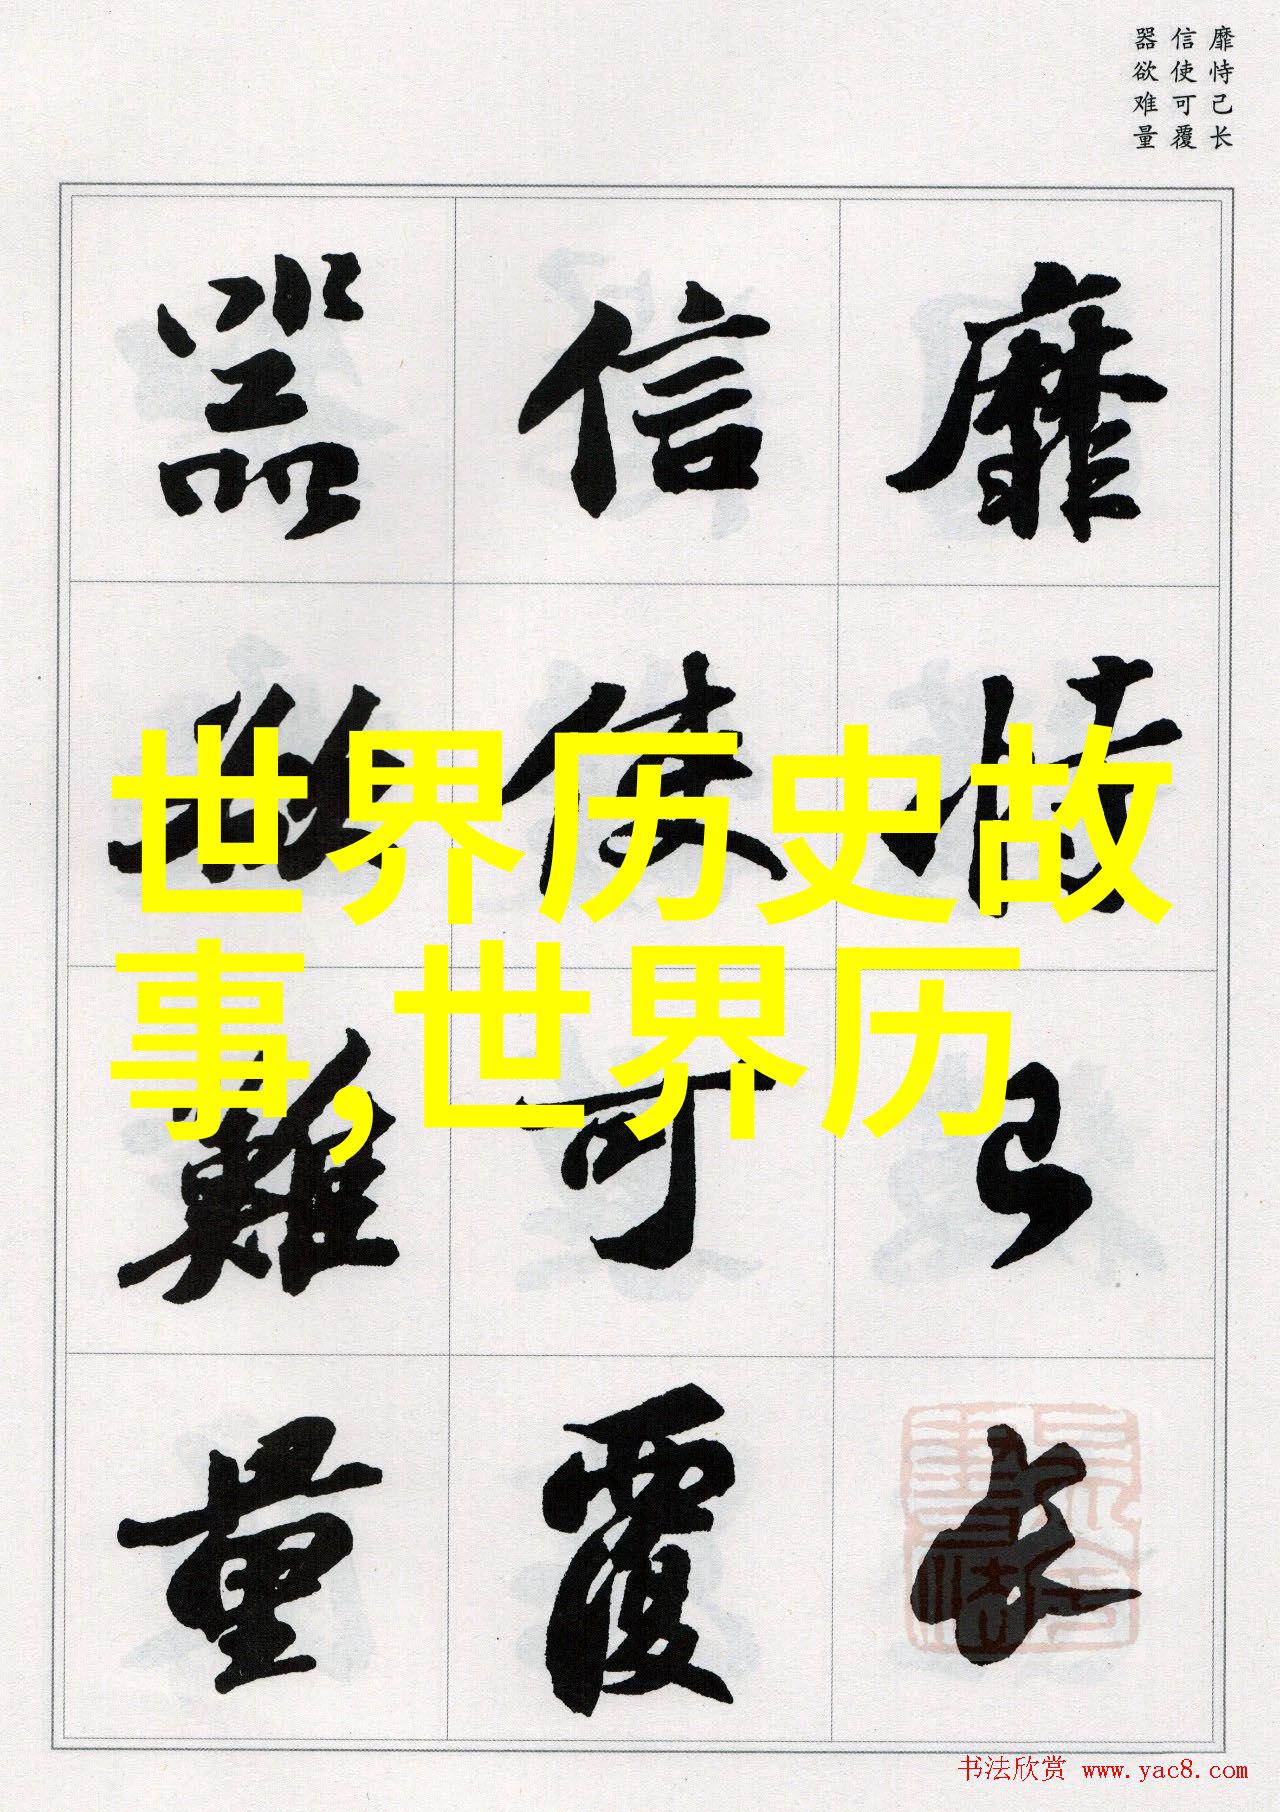 靡恃己长
信使可覆
器欲难量
靡恃己長
信使可覆
器欲難量
世界历史故
事,世界历
书法欣赏 www.yac8.com